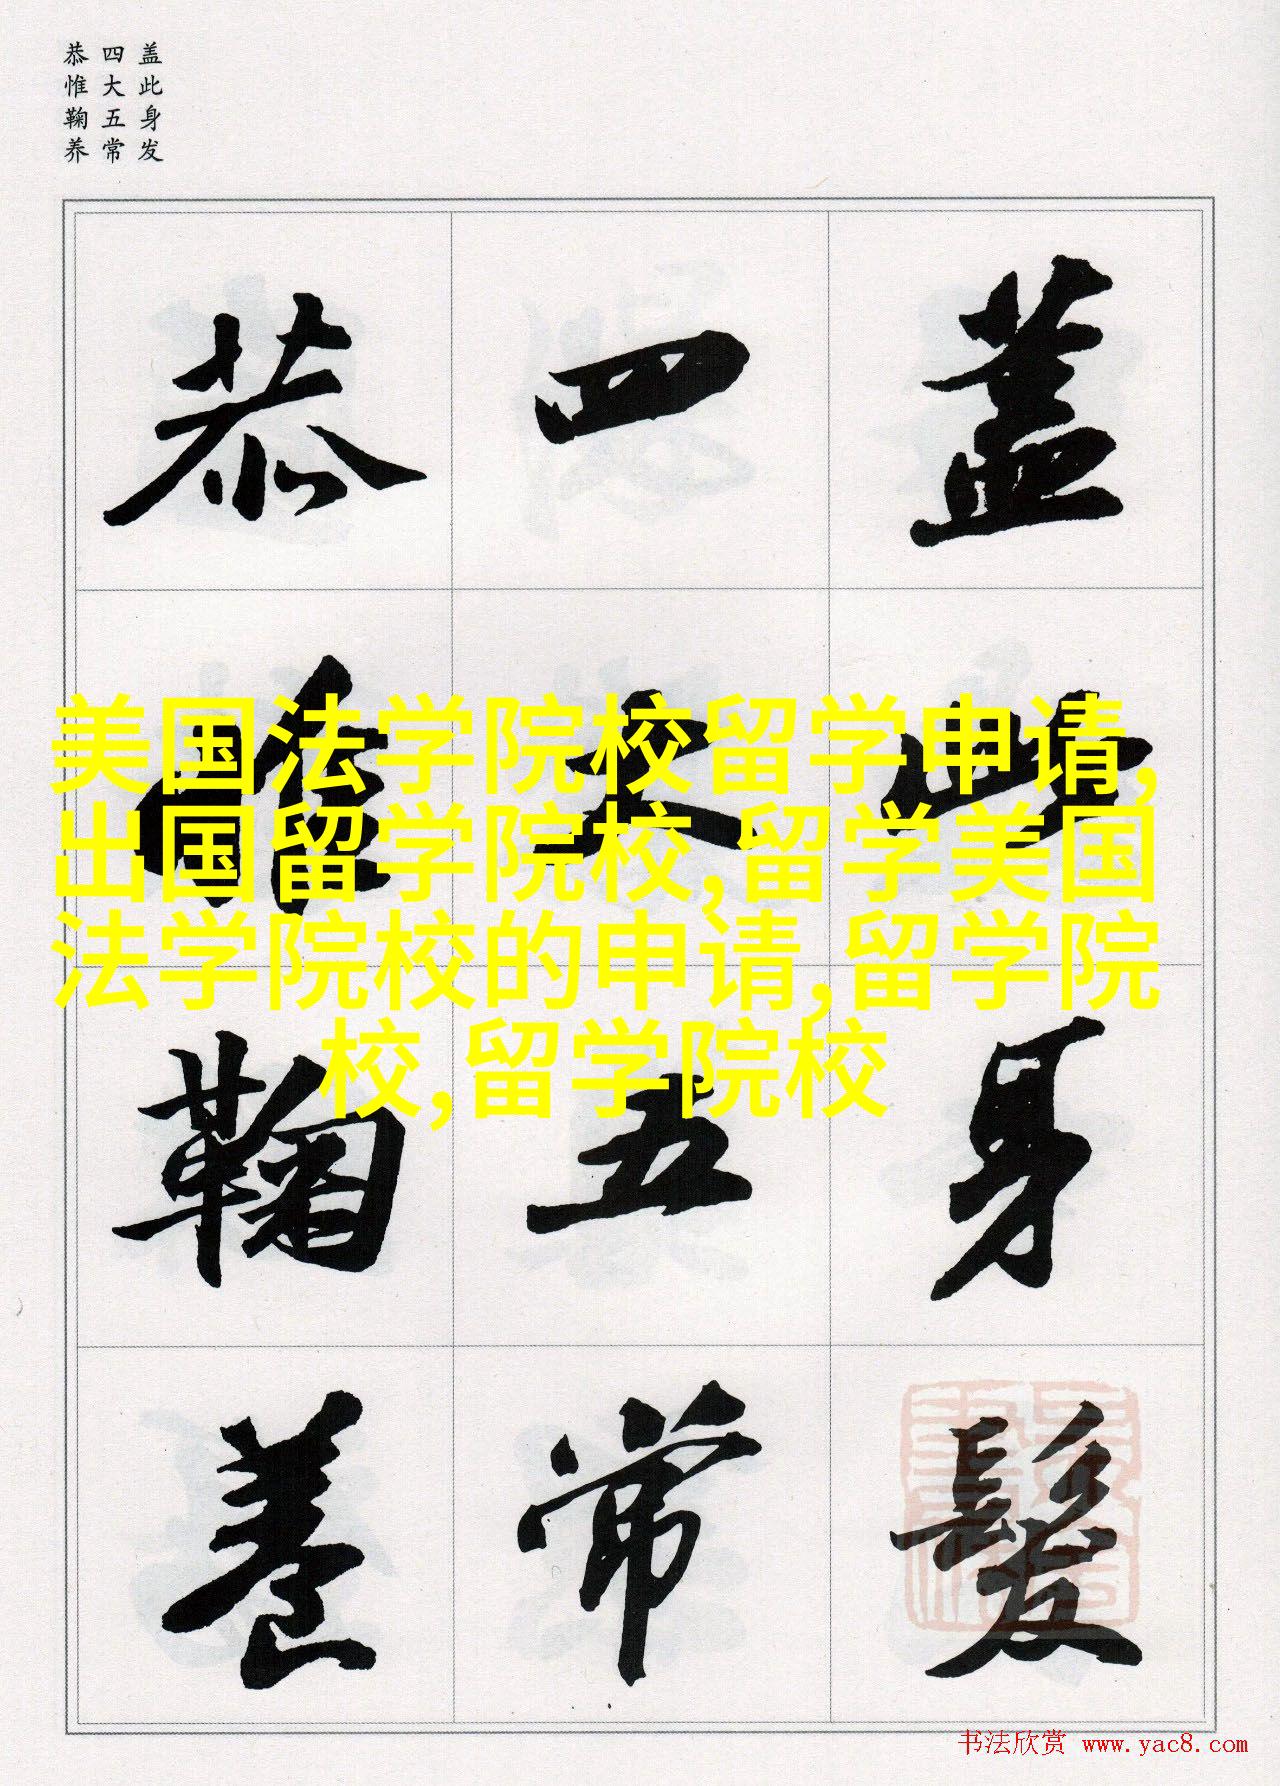 盖此身发
四大五常
恭惟鞠养
蓋此身髮
四大五常
恭惟鞠養
美国法学院校留学申请,
出国留学院校,留学美国
法学院校的申请,留学院
校,留学院校
书法欣赏 www.yac8.com